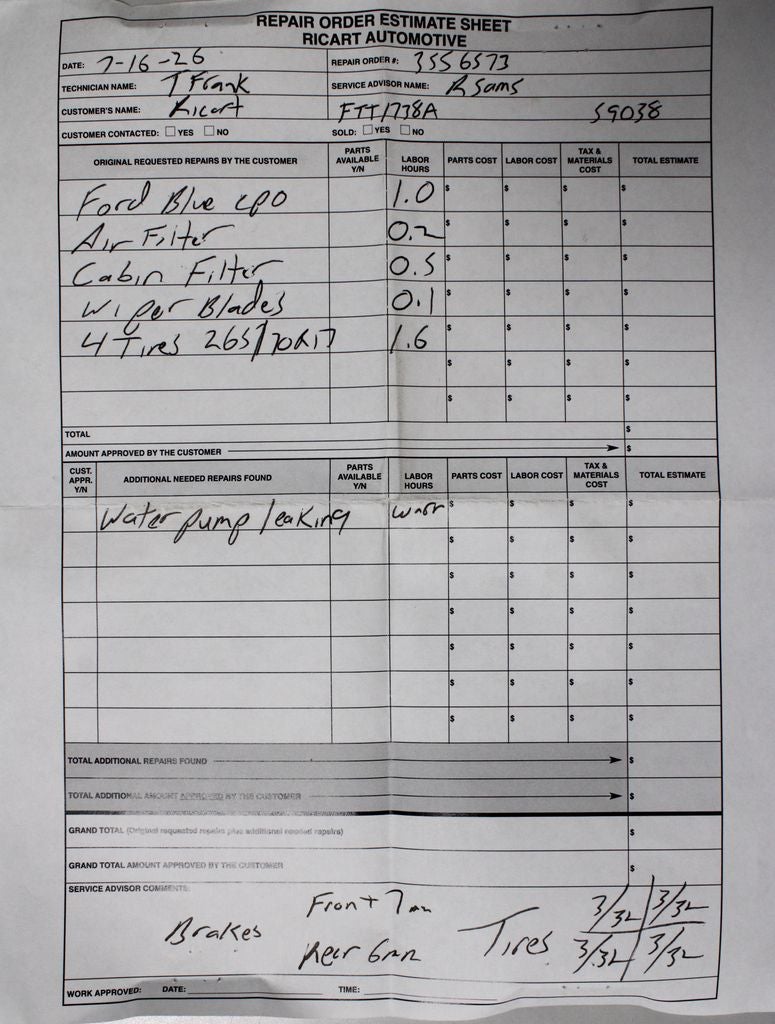 REPAIR ORDER ESTIMATE SHEET
RICART AUTOMOTIVE
DATE: 7-16-26 REPAIR ORDER #: 3556573
TECHNICIAN NAME: T Frank SERVICE ADVISOR NAME: R Sams
CUSTOMER'S NAME: Ricart FTT1738A 59038
CUSTOMER CONTACTED: ☐ YES ☐ NO SOLD: ☐ YES ☐ NO
ORIGINAL REQUESTED REPAIRS BY THE CUSTOMER PARTS AVAILABLE Y/N LABOR HOURS PARTS COST LABOR COST TAX & MATERIALS COST TOTAL ESTIMATE
Ford Blue CPO 1.0 $ $ $ $
Air Filter 0.2 $ $ $ $
Cabin Filter 0.5 $ $ $ $
Wiper Blades 0.1 $ $ $ $
4 Tires 265/70R17 1.6 $ $ $ $
$ $ $ $
$ $ $ $
TOTAL $
AMOUNT APPROVED BY THE CUSTOMER $
CUST. APPR. Y/N ADDITIONAL NEEDED REPAIRS FOUND PARTS AVAILABLE Y/N LABOR HOURS PARTS COST LABOR COST TAX & MATERIALS COST TOTAL ESTIMATE
Water pump leaking warr $ $ $ $
$ $ $ $
$ $ $ $
$ $ $ $
$ $ $ $
$ $ $ $
$ $ $ $
TOTAL ADDITIONAL REPAIRS FOUND $
TOTAL ADDITIONAL AMOUNT APPROVED BY THE CUSTOMER $
GRAND TOTAL (Original requested repairs plus additional needed repairs) $
GRAND TOTAL AMOUNT APPROVED BY THE CUSTOMER $
SERVICE ADVISOR COMMENTS:
Brakes Front 7mm Tires 3/32 3/32
Rear 6mm 3/32 3/32
WORK APPROVED: DATE: TIME: